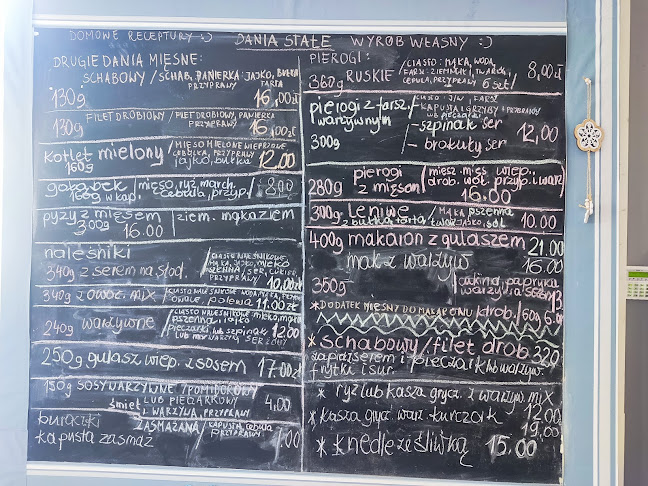 DOMOWE RECEPTURY :) DANIA STAŁE WYRÓB WŁASNY :)
DRUGIE DANIA MIĘSNE:
SCHABOWY / SCHAB, PANIERKA: JAJKO, BUŁKA
PRZYPRAWY TARTA
130g 16,00zł
FILET DROBIOWY / FILET DROBIOWY, PANIERKA
130g PRZYPRAWY 16,00zł
kotlet mielony / MIĘSO MIELONE WIEPRZOWE
160g CEBULKA, PRZYPRAWY
jajko, bułka 12.00
gołąbek / mięso, ryż, march.
160g w kap. cebula, przyp. 8,00
pyzy z mięsem / ziem. mąka ziem
300g 16.00
naleśniki
CIASTO NALEŚNIKOWE
MĄKA, JAJKO, MLEKO
340g z serem na słod. PSZENNA / SER, CUKIER,
PRZYPRAWY 10,00zł
340g z owoc. mix / CIASTO NALEŚNIKOWE
OWOCE, polewa 11.00zł
CIASTO NALEŚNIKOWE mleko, mąka
pszenna, jajko
240g warzywne pieczarki lub szpinak 12.00
lub mix warzyw SER ŻÓŁTY
250g gulasz wiep. z sosem 17.00zł
150g SOSY WARZYWNE / POMIDOROWY
śmiet. LUB PIECZARKOWY 4,00
z WARZYWA, PRZYPRAWY
buraczki ZASMAŻANA / KAPUSTA, cebula
PRZYPRAWY
kapusta zasmaż
PIEROGI: / CIASTO: MĄKA, WODA,
FARSZ: ZIEMNIAKI, TWARÓG,
RUSKIE / CEBULA, PRZYPRAWY 6szt/ 8,00zł
360g
pierogi z farsz. CIASTO: J/W, FARSZ
KAPUSTA I GRZYBY I PRZYPRAWY
warzywnym lub pieczarki
- szpinak ser 12,00
300g - brokuły ser
pierogi / miesz. mięs wiep.
280g z mięsem drob. woł. przyp. i warz/
16.00
300g Leniwe / MĄKA pszenna
z bułką tartą twaróg, JAJKO, sól 10.00
400g makaron z gulaszem 21.00
mak z warzyw 16.00
350g / cukinia, papryka
warzywa, cebula
*DODATEK MIĘSNY DO MAKARONU drob./60g 6.00
* schabowy/filet drob 320
zapiek. z serem i pieczark lub warzyw.
frytki i sur.
* ryż lub kasza grycz. z warzyw. mix
12.00
* kasza grycz. warz. kurczak 19.00
* knedle ze śliwką 15.00